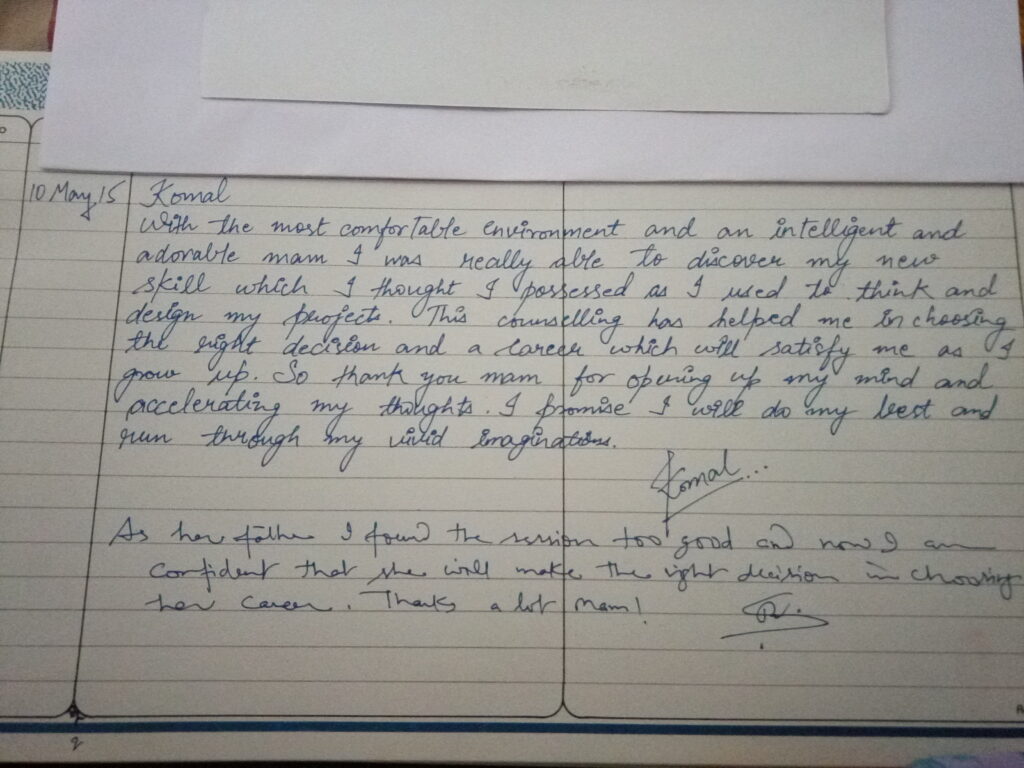 10 May, 15 Komal
With the most comfortable environment and an intelligent and
adorable mam I was really able to discover my new
skill which I thought I possessed as I used to think and
design my projects. This counselling has helped me in choosing
the right decision and a career which will satisfy me as I
grow up. So thank you mam for opening up my mind and
accelerating my thoughts. I promise I will do my best and
run through my vivid imaginations.
Komal...
As her father I found the session too good and now I am
confident that she will make the right decision in choosing
her career. Thanks a lot Mam!